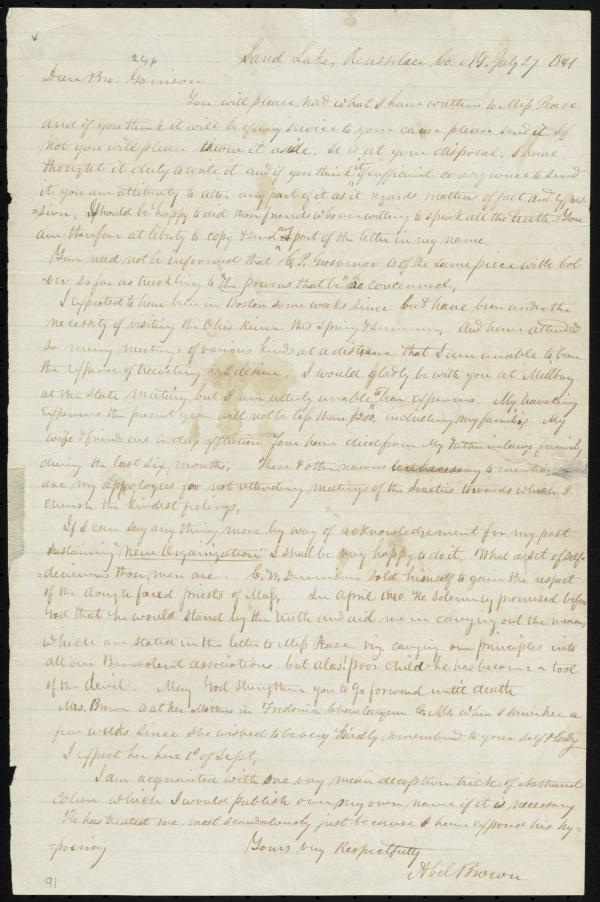 Sand Lake, Rensselaer Co. N.Y. July 27 1841
246
Dear Bro. Garrison
You will please read what I have written to Miss Pease
and if you think it will be of any service to your cause please send it. If
not you will please throw it aside. It is at your disposal. I have
thought it duty to write it and if you think it of sufficient consequence to send
it you are at liberty to alter any part of it as it regards matters of fact and expres-
=sion. I would be happy to aid those friends who are willing to speak all the truth You
are therefore at liberty to copy & send any part of the letter in my name.
You need not be informed that C. P. Grosvenor is of the same piece with Col
ver so far as truckling to "the powers that be" is concerned.
I expected to have been in Boston some weeks since but have been under the
necessity of visiting the Ohio River this Spring & Summer. And have attended
so many meetings of various kinds at a distance that I am unable to bear
the expense of traveling as I desire. I would gladly be with you at Millbury
at the State Meeting but I am utterly unable to bear expenses. My traveling
expenses the present year will not be less than $200, including my families. My
wife & friends are in deep affliction Four have died from My Father in laws family
during the last six months. These & other reasons unnecessary to mention
are my apologies for not attending meetings of the Societies towards which I
cherish the kindest feelings.
If I can say any thing more by way of acknowledgement for my past
sustaining "New Organization" I shall be very happy to do it. What a set of self-
=deceivers those men are. C. W. Dennison sold himself to gain the respect
of the dough faced priests of Mass. In April 1840 He solemnly promised before
God that he would stand by the truth and aid me in carrying out the measures
which are stated in the letter to Miss Pease viz carrying our principles into
all our Benevolent associations but alas! poor child he has become a tool
of the devil. May God strengthen you to go forward until death
Mrs. Brown is at her Mothers in Fredonia Chautauque Co N.Y. When I saw her a
few weeks since she wished to be very kindly remembered to your self & Lady
I expect her here 1st of Sept.
I am acquainted with one very mean deception trick of Nathaniel
Colver which I would publish over my own name if it is necessary
He has treated me most scandalously just because I have exposed his hy-
=pocrisy
Yours very Respectfully
Abel Brown
91